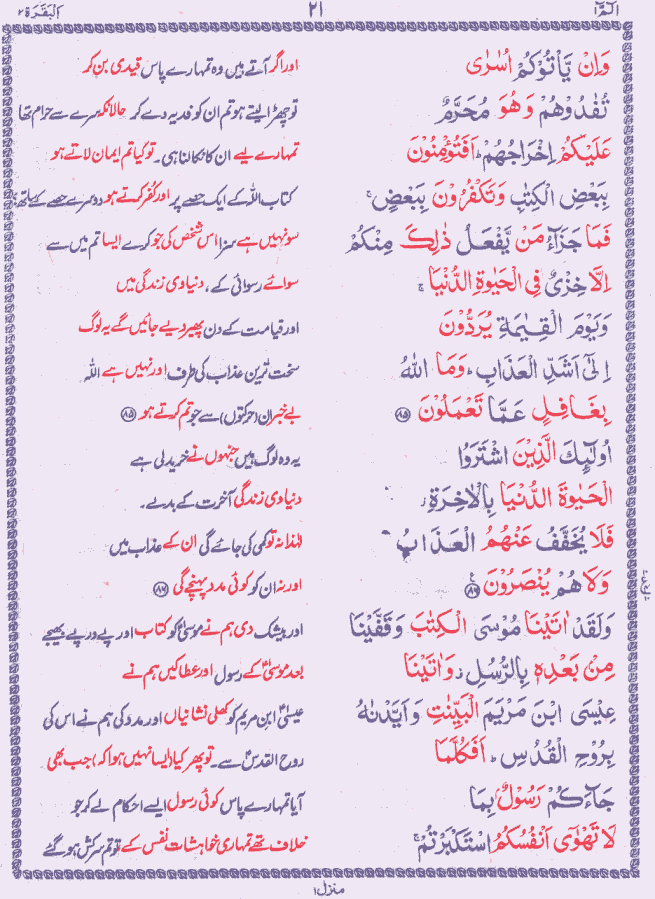 الٓمّٓ ١
٢١
اَلْبَقَرَة ٢
وَاِنْ يَّاْتُوْكُمْ اُسٰرٰى اور اگر آتے ہیں وہ تمہارے پاس قیدی بن کر
تُفٰدُوْهُمْ وَهُوَ مُحَرَّمٌ تو چھڑا لیتے ہو تم ان کو فدیہ دے کر حالانکہ سرے سے حرام تھا
عَلَيْكُمْ اِخْرَاجُهُمْ ؕ اَفَتُؤْمِنُوْنَ تمہارے لیے ان کا نکالنا ہی۔ تو کیا تم ایمان لاتے ہو
بِبَعْضِ الْكِتٰبِ وَتَكْفُرُوْنَ بِبَعْضٍ ۚ کتاب اللہ کے ایک حصے پر اور کفر کرتے ہو دوسرے حصے کے ساتھ؟
فَمَا جَزَآءُ مَنْ يَّفْعَلُ ذٰلِكَ مِنْكُمْ سو نہیں ہے سزا اس شخص کی جو کرے ایسا تم میں سے
اِلَّا خِزْىٌ فِى الْحَيٰوةِ الدُّنْيَا ۚ سوائے رسوائی کے، دنیاوی زندگی میں
وَيَوْمَ الْقِيٰمَةِ يُرَدُّوْنَ اور قیامت کے دن پھیر دیے جائیں گے یہ لوگ
اِلٰٓى اَشَدِّ الْعَذَابِ ؕ وَمَا اللّٰهُ سخت ترین عذاب کی طرف اور نہیں ہے اللہ
بِغَافِلٍ عَمَّا تَعْمَلُوْنَ ﴿٨٥﴾ بے خبر ان (حرکتوں) سے جو تم کرتے ہو ﴿٨٥﴾
اُولٰٓئِكَ الَّذِيْنَ اشْتَرَوُا یہ وہ لوگ ہیں جنہوں نے خرید لی ہے
الْحَيٰوةَ الدُّنْيَا بِالْاٰخِرَةِ ۫ دنیاوی زندگی آخرت کے بدلے۔
فَلَا يُخَفَّفُ عَنْهُمُ الْعَذَابُ لہٰذا نہ تو کمی کی جائے گی ان کے عذاب میں
وَلَا هُمْ يُنْصَرُوْنَ ﴿٨٦﴾ اور نہ ان کو کوئی مدد پہنچے گی ﴿٨٦﴾
وَلَقَدْ اٰتَيْنَا مُوْسَى الْكِتٰبَ وَقَفَّيْنَا اور بیشک دی ہم نے موسیٰؑ کو کتاب اور پے در پے بھیجے
مِنْ بَعْدِهٖ بِالرُّسُلِ ؗ وَاٰتَيْنَا بعد موسیٰؑ کے رسول اور عطا کیں ہم نے
عِيْسَى ابْنَ مَرْيَمَ الْبَيِّنٰتِ وَاَيَّدْنٰهُ عیسیٰؑ ابن مریم کو کھلی نشانیاں اور مدد کی ہم نے اس کی
بِرُوْحِ الْقُدُسِ ؕ اَفَكُلَّمَا روح القدس سے۔ تو پھر کیا (ایسا نہیں ہوا کہ) جب بھی
جَآءَكُمْ رَسُوْلٌۢ بِمَا آیا تمہارے پاس کوئی رسول ایسے احکام لے کر جو
لَا تَهْوٰٓى اَنْفُسُكُمُ اسْتَكْبَرْتُمْ ۚ خلاف تھے تمہاری خواہشات نفس کے تو تم سرکش ہو گئے
منزل ١